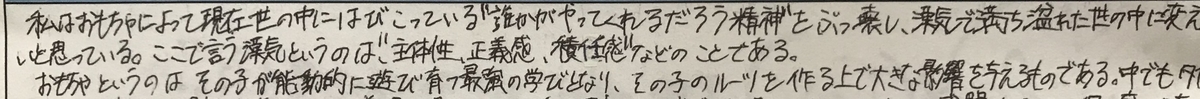 私はおもちゃによって現在世の中にはびこっている"誰かがやってくれるだろう精神"をぶっ壊し、漢気で満ち溢れた世の中に変え
いと思っている。ここで言う漢気というのは"主体性、正義感、責任感"などのことである。
おもちゃというのはその子が能動的に遊び育つ最強の学びとなり、その子のルーツを作る上で大きな影響を与えるものである。中でも